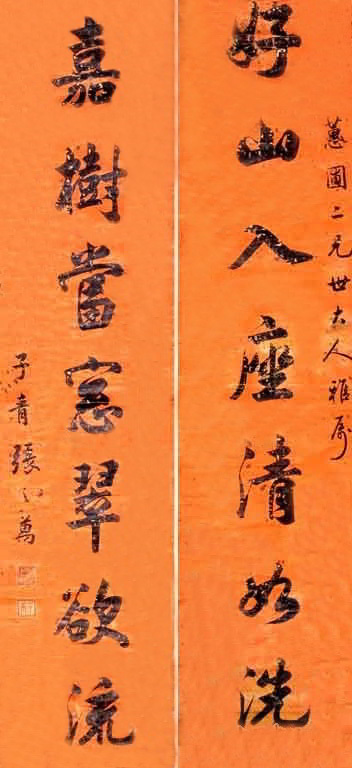 蕙圃二兄世大人雅屬
好山入座清如洗
嘉樹當窗翠欲流
子青張之萬